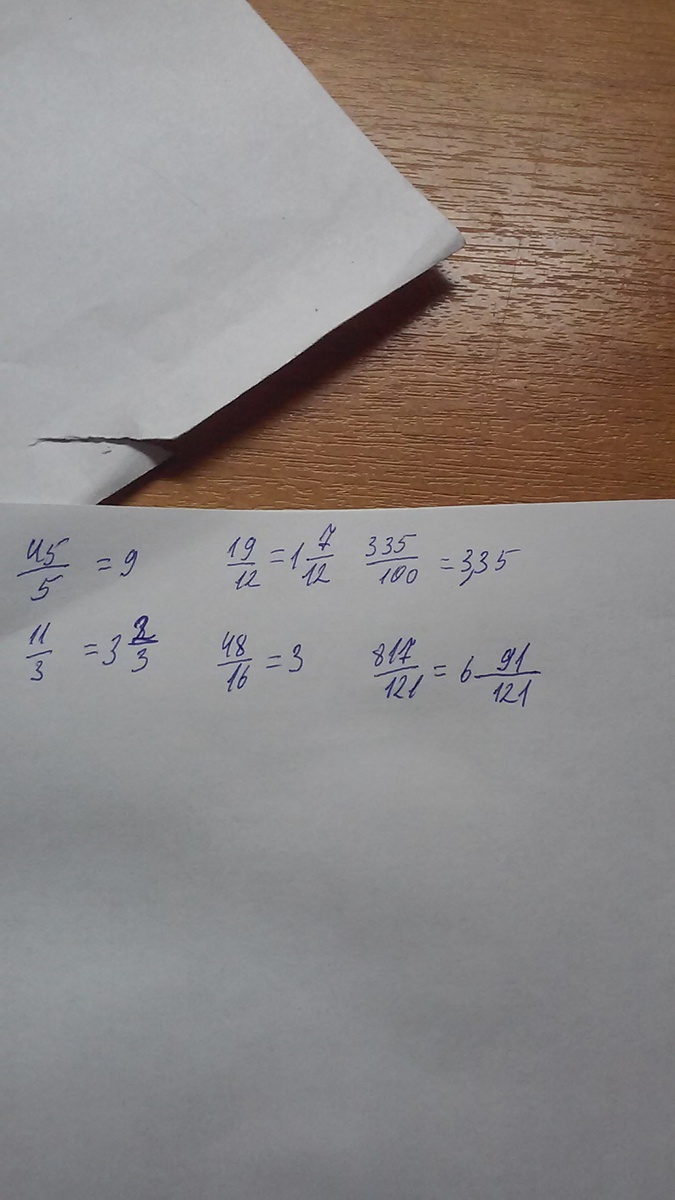 45/5 = 9 19/12 = 1 7/12 335/100 = 3,35
11/3 = 3 2/3 48/16 = 3 817/121 = 6 91/121